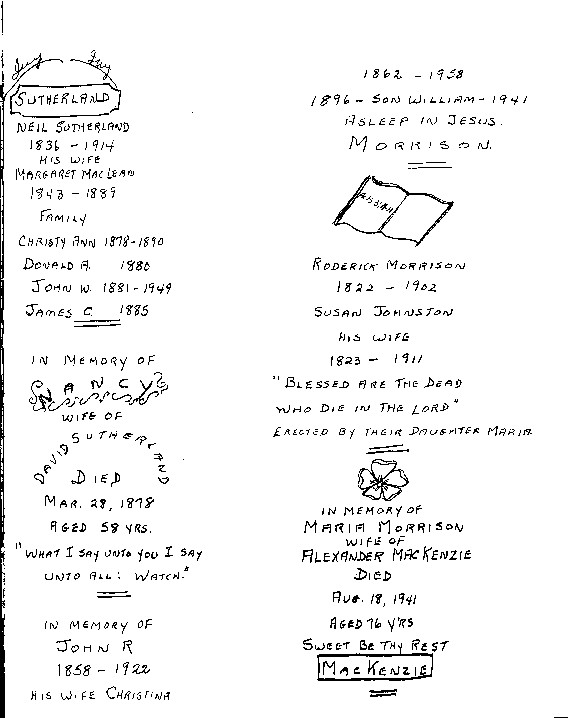 Ivy Ivy
SUTHERLAND
NEIL SUTHERLAND
1836 - 1914
HIS WIFE
MARGARET MACLEAN
1843 - 1889
FAMILY
CHRISTY ANN 1878-1890
DONALD A. 1880
JOHN W. 1881-1949
JAMES C. 1885
IN MEMORY OF
NANCY
WIFE OF
DAVID SUTHERLAND
DIED
MAR. 28, 1878
AGED 58 YRS.
"WHAT I SAY UNTO YOU I SAY
UNTO ALL: WATCH."
IN MEMORY OF
JOHN R
1858 - 1922
HIS WIFE CHRISTINA
1862 - 1958
1896 - SON WILLIAM - 1941
ASLEEP IN JESUS.
MORRISON.
RODERICK MORRISON
1822 - 1902
SUSAN JOHNSTON
HIS WIFE
1823 - 1911
"BLESSED ARE THE DEAD
WHO DIE IN THE LORD"
ERECTED BY THEIR DAUGHTER MARIA
IN MEMORY OF
MARIA MORRISON
WIFE OF
ALEXANDER MACKENZIE
DIED
AUG. 18, 1941
AGED 76 YRS
SWEET BE THY REST
MACKENZIE